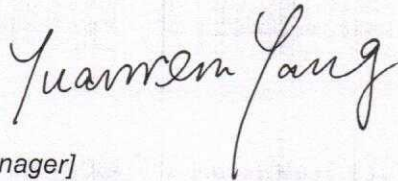 Yuanwen Yang
nager]